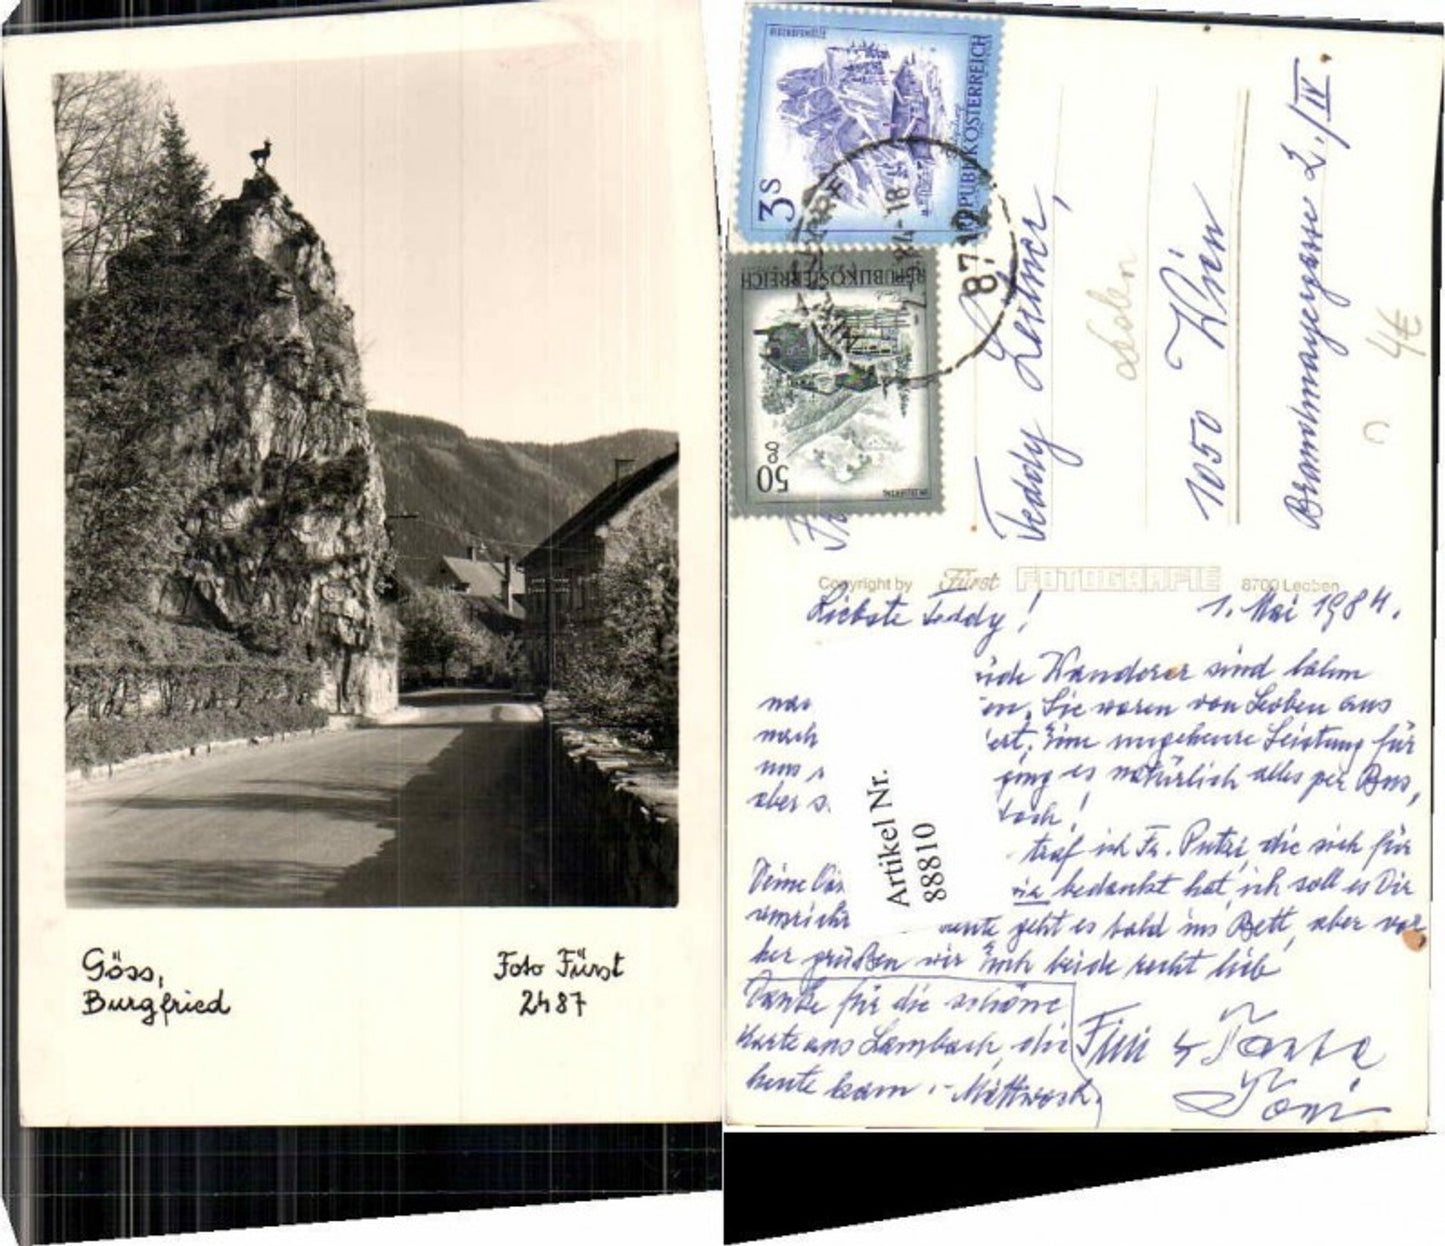 Göss,
Burgfried
Foto Fürst
2487
3 S
REPUBLIK ÖSTERREICH
50 g
REPUBLIK ÖSTERREICH
8712
Teddy
1050 Wien
Brandmayergasse 2./IV.
4€
Copyright by Fürst FOTOGRAFIE 8700 Leoben
Liebste Teddy! 1. Mai 1984.
Wanderer sind lahm
Sie waren von Leoben aus
nach eine ungeheure Leistung für
uns ging es natürlich alles per Bus,
aber
traf ich Fr. Putzi, die sich für
Deine bedankt hat, ich soll es Dir
geht es bald ins Bett, aber vor
her grüßen wir Euch beide recht lieb
Danke für die schöne
Karte aus Lambach, die
heute kam. - Mittwoch.
Fini & Tante
Toni
Artikel Nr.
88810